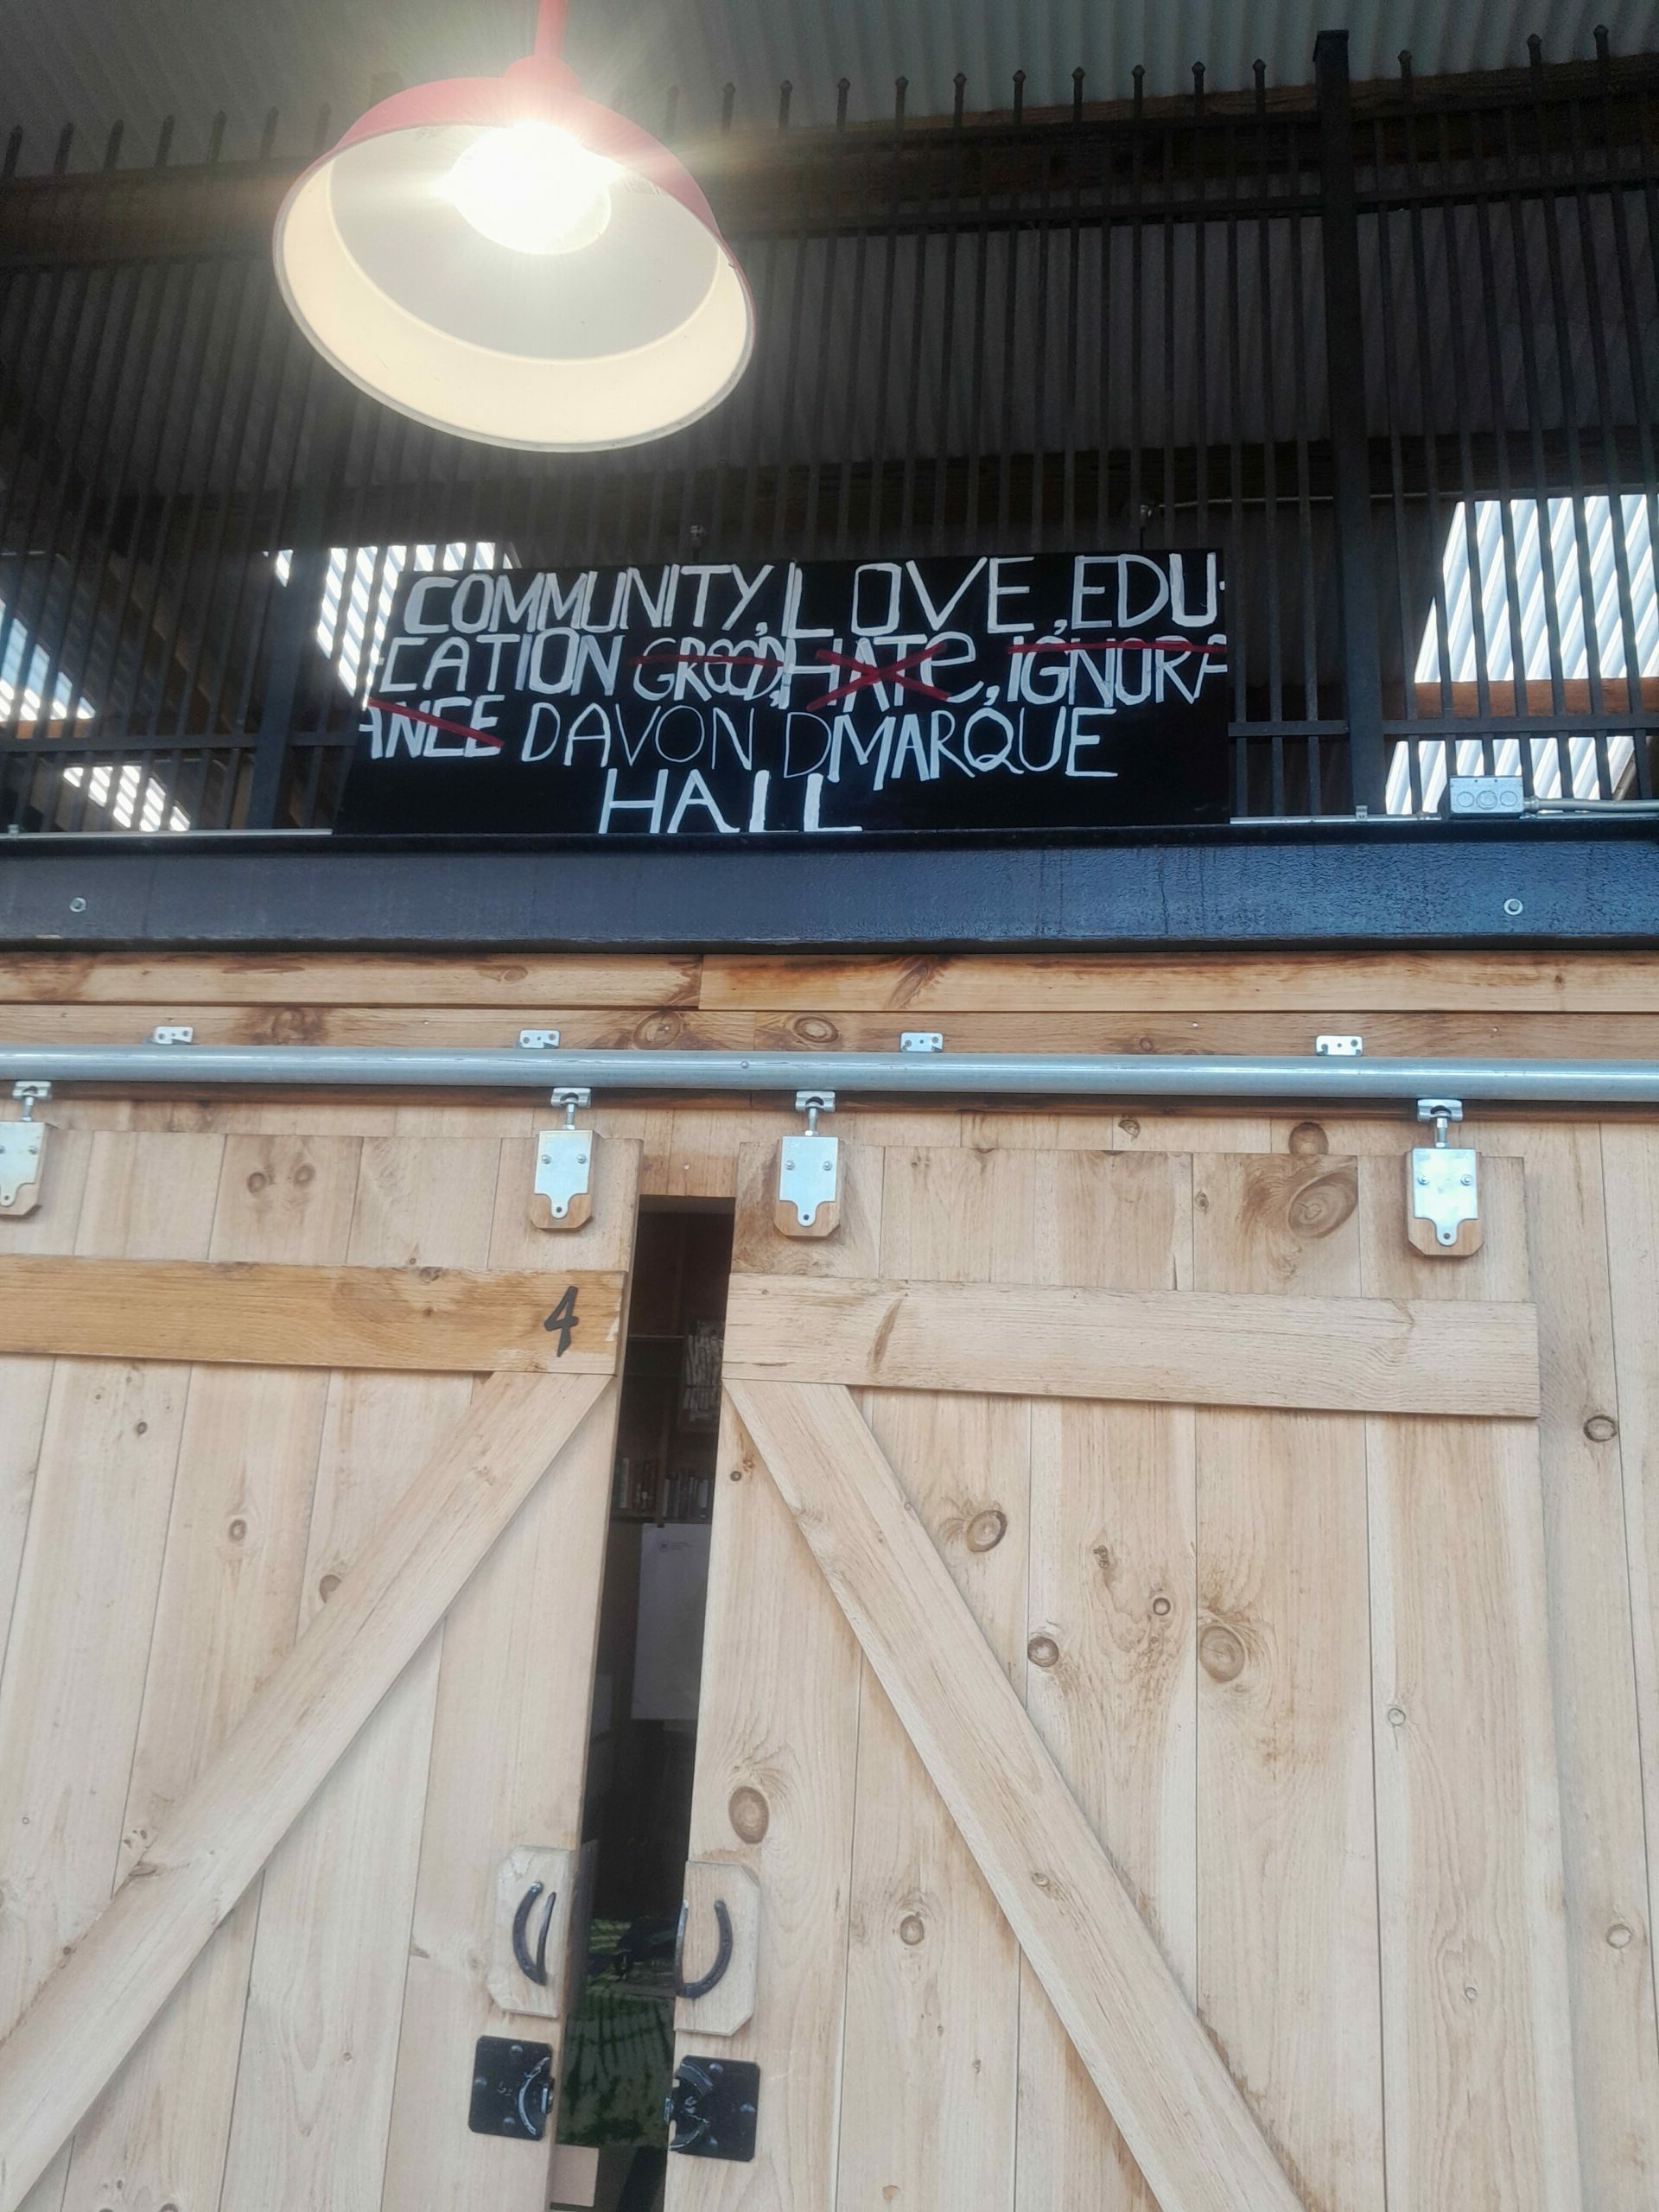 COMMUNITY, LOVE, EDU-
-CATION GREED, HATE, IGNORA
ANCE DAVON DMARQUE
HALL
4